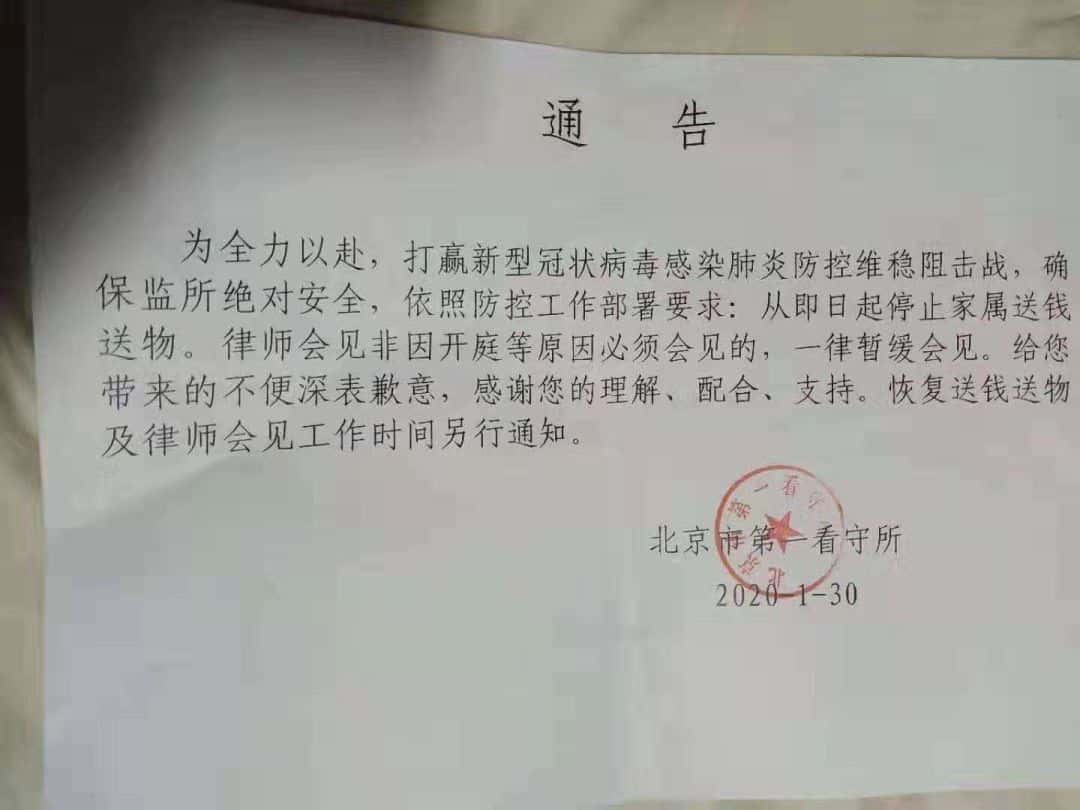 通 告
为全力以赴，打赢新型冠状病毒感染肺炎防控维稳阻击战，确
保监所绝对安全，依照防控工作部署要求：从即日起停止家属送钱
送物。律师会见非因开庭等原因必须会见的，一律暂缓会见。给您
带来的不便深表歉意，感谢您的理解、配合、支持。恢复送钱送物
及律师会见工作时间另行通知。
北京市第一看守所
2020-1-30